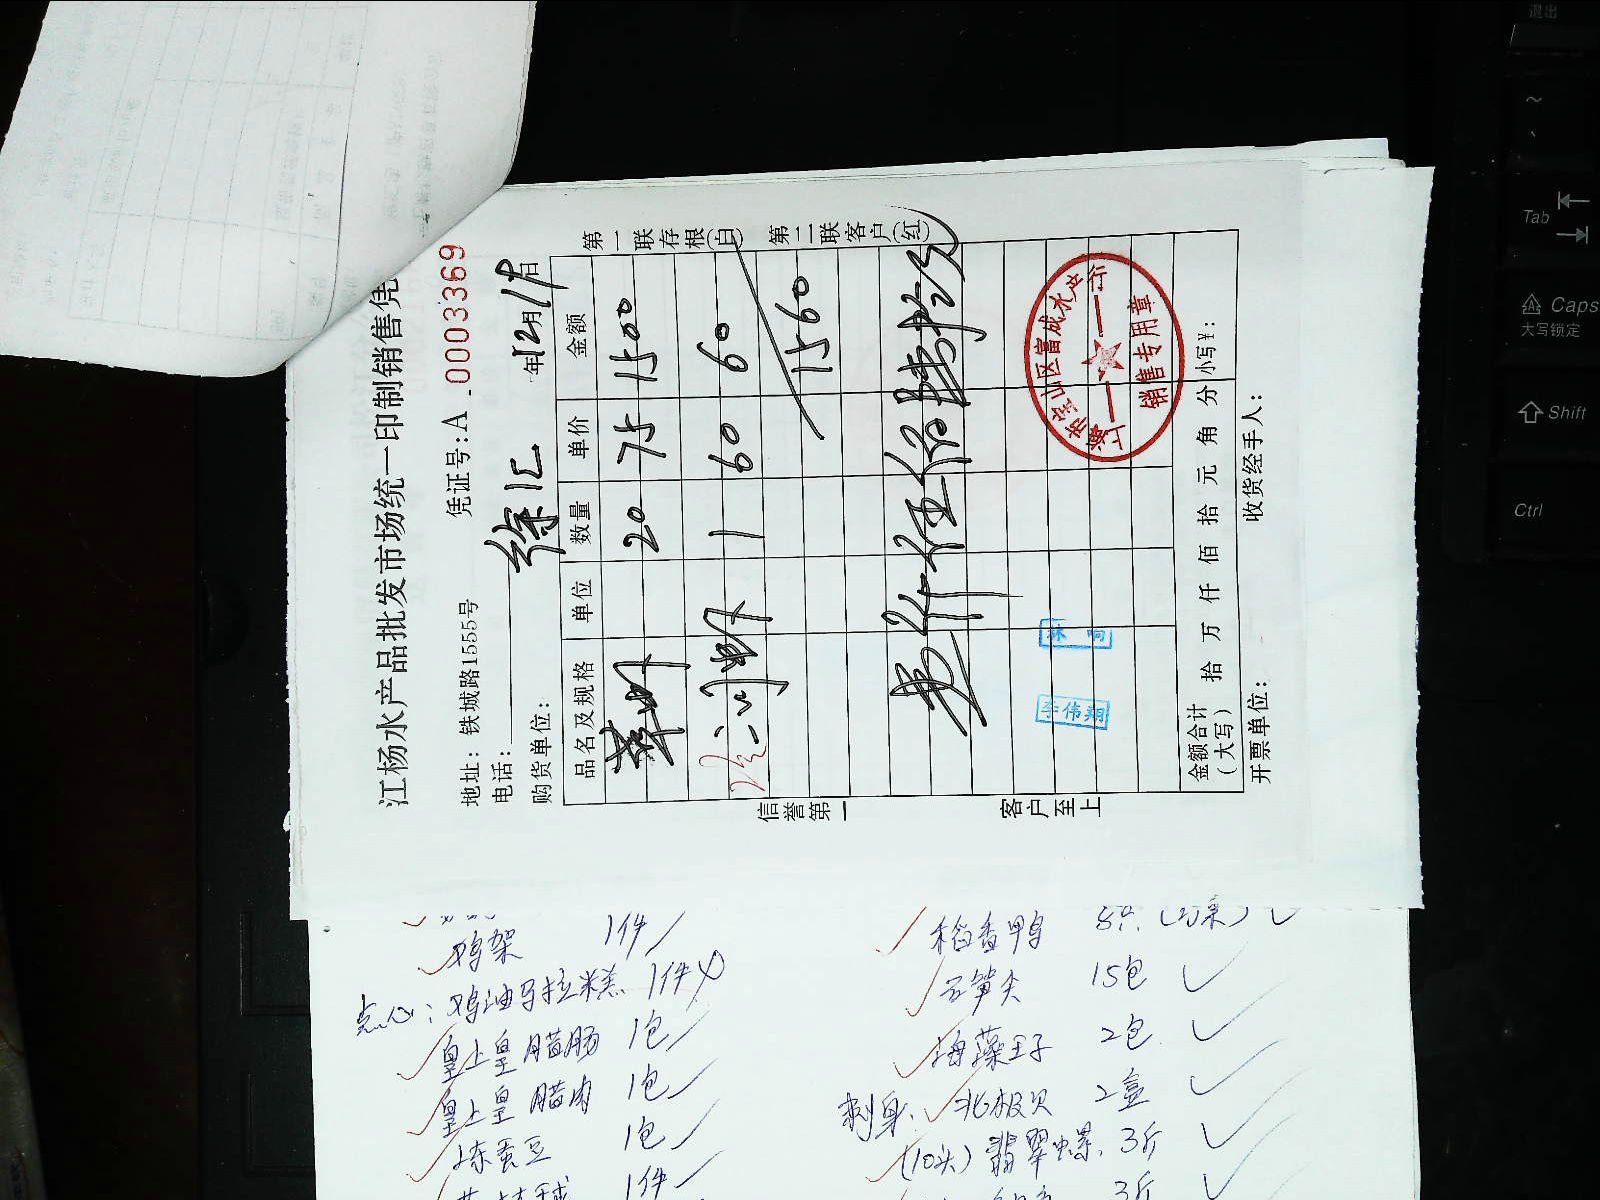 江杨水产品批发市场统一印制销售凭
地址：铁城路1555号
凭证号：A
0003369
电话：
购货单位：
徐汇
年12月1日
品名及规格 单位 数量 单价 金额
20 75 1500
1 60 60
1560
壹仟伍佰陆拾元
上海市宝山区富成水产行
销售专用章
李伟翔
金额合计（大写） 拾 万 仟 佰 拾 元 角 分 小写¥：
开票单位：
收货经手人：
第一联存根（白）
第二联客户（红）
信誉第一
客户至上
鸡架 1件
点心：鸡油马拉糕 1件
皇上皇腊肠 1包
皇上皇腊肉 1包
冻蚕豆 1包
1件
稻香鸭
15包
海藻王子 2包
刺身：北极贝 2盒
（10头）翡翠螺 3斤
3斤
退出
Tab
Caps
大写锁定
Shift
Ctrl